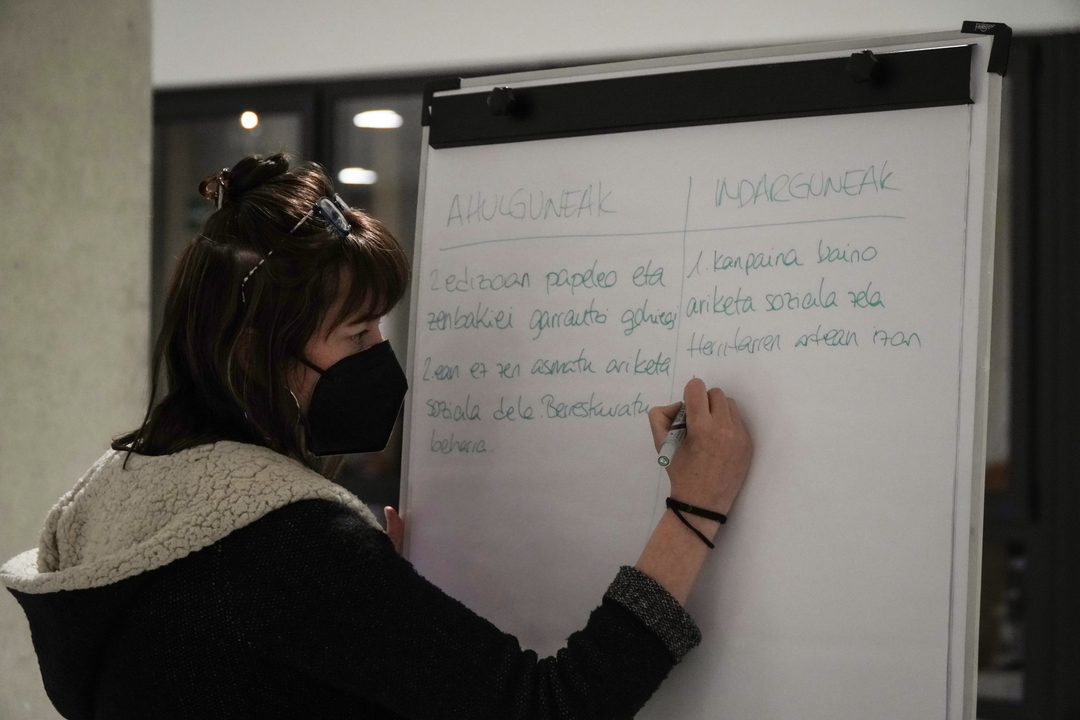 AHULGUNEAK
2 edizoan papeleo eta
zenbakiei garrantzi gehiegi
2.ean ez zen asmatu ariketa
soziala dela. Berreskuratu
beharra.
INDARGUNEAK
1. kanpaina baino
ariketa soziala zela
Herritarren artean izan